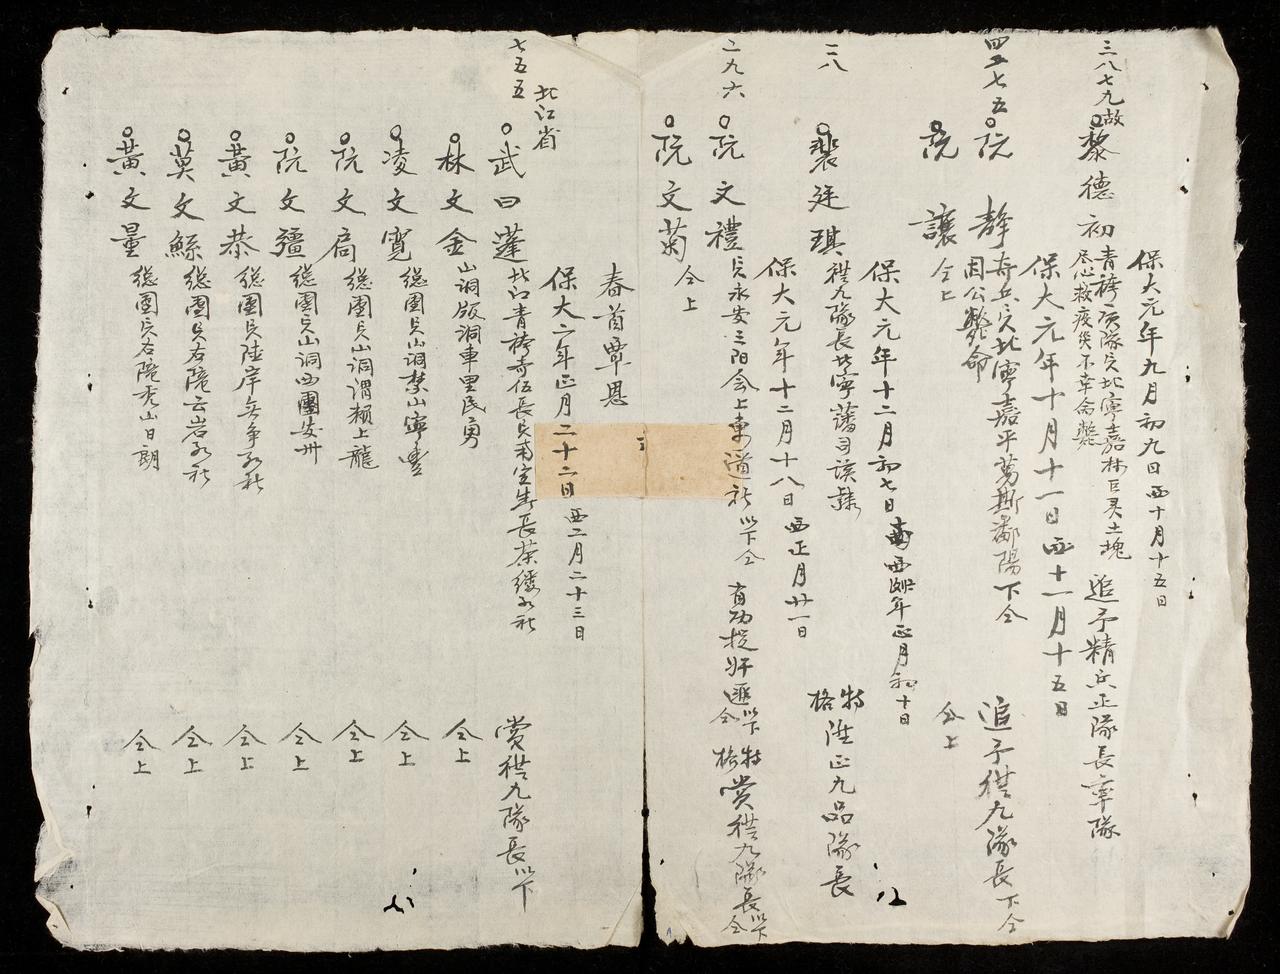 保大元年九月初九日 西十月十五日
三八七九 故
黎德初 青袴項隊兵北寧嘉林巨灵土塊 尽心救疫災不幸命斃 追予精兵正隊長率隊
保大元年十月十一日 西十一月十五日
四五七五
阮靜 奇兵兵北寧嘉平萬斯鄱陽下仝 因公斃命 追予從九隊長下仝
阮讓 仝上 仝上
保大元年十二月初七日 西 年正月初十日
二八
裴廷琪 從九隊長北寧藩司該隸 特格陞正九品隊長
保大元年十二月十八日 西正月廿一日
二九六
阮文禮 兵永安三阳会上東道社以下仝 有功捉奸匪以下仝 特格賞從九隊長以下仝
阮文菊 仝上
春首覃恩
保大二年正月二十二日 西二月二十三日
北江省
七五五
武曰蓬 北江青袴奇伍長兵 長 社 賞從九隊長以下
林文金 山洞版洞車里民勇 仝上
凌文寬 總團兵山洞禁山寧豊 仝上
阮文扃 總團兵山洞謂賴上龍 仝上
阮文彊 總團兵山洞西團发卅 仝上
黃文恭 總團兵陸岸 社 仝上
莫文鯀 總團兵右隴云岩 社 仝上
黃文量 總團兵右隴秃山日朗 仝上